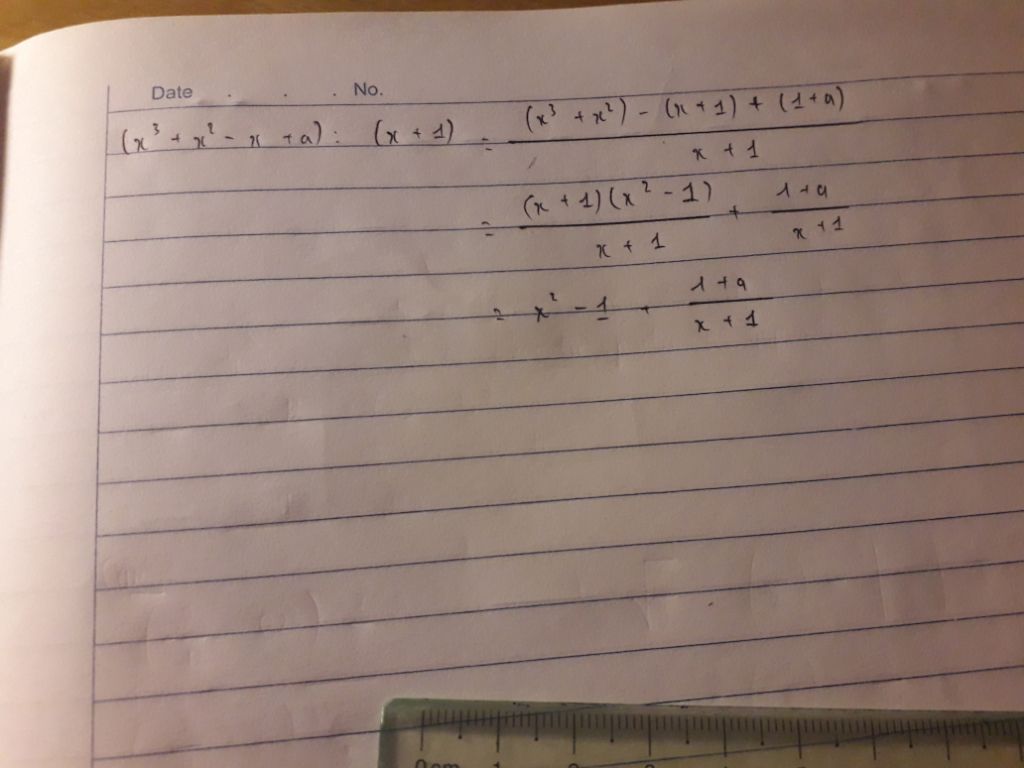 Date . . . No.
(x³ + x² - x + a) : (x + 1) = \frac{(x³ + x²) - (x + 1) + (1 + a)}{x + 1}
= \frac{(x + 1)(x² - 1)}{x + 1} + \frac{1 + a}{x + 1}
= x² - 1 + \frac{1 + a}{x + 1}
0cm 1 2 3